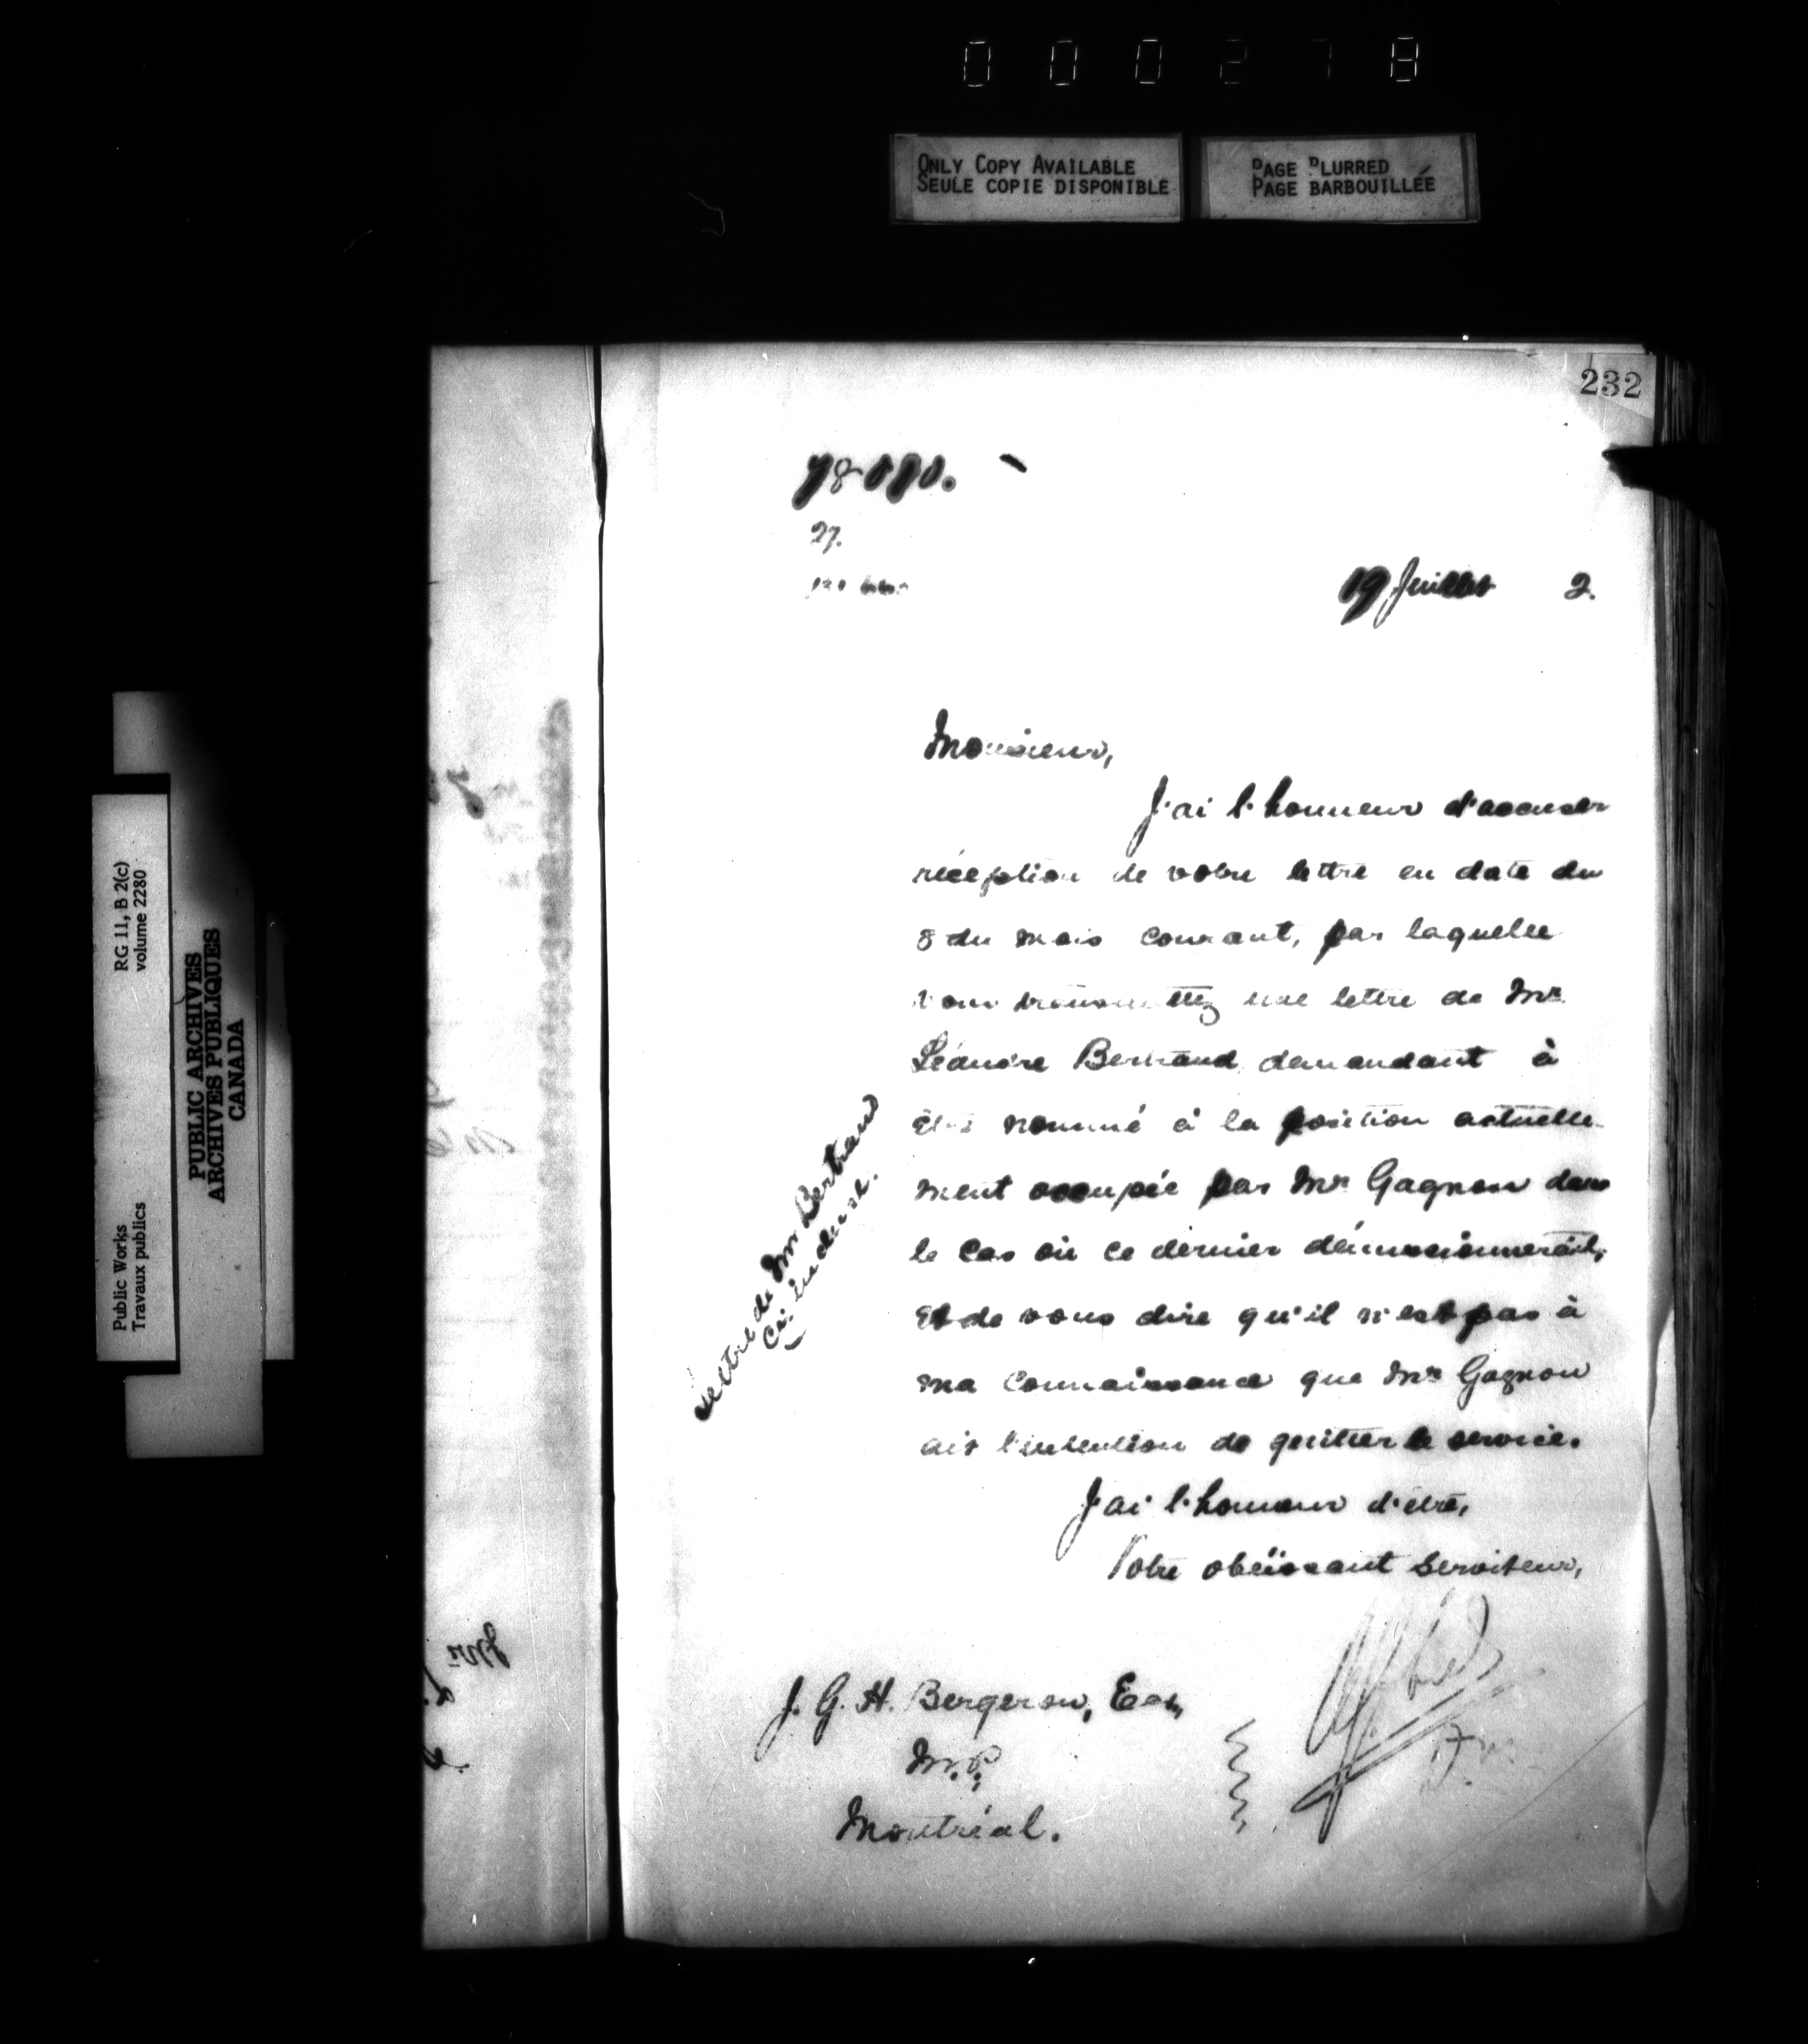 000278
ONLY COPY AVAILABLE
SEULE COPIE DISPONIBLE
PAGE BLURRED
PAGE BARBOUILLÉE
RG 11, B 2(c)
volume 2280
Public Works
Travaux publics
PUBLIC ARCHIVES
ARCHIVES PUBLIQUES
CANADA
232
27.
19 Juillet 2.
Monsieur,
J'ai l'honneur d'accuser
réception de votre lettre en date du
8 du mois courant, par laquelle
vous transmettez une lettre de Mr
Léandre Bertrand demandant à
être nommé à la position actuelle-
ment occupée par Mr Gagnon dans
le cas où ce dernier démissionnerait,
et de vous dire qu'il n'est pas à
ma connaissance que Mr Gagnon
ait l'intention de quitter le service.
Lettre de Mr Bertrand
ci-incluse.
J'ai l'honneur d'être,
Votre obéissant serviteur,
J. G. H. Bergeron, Ecr,
M.P.,
Montréal.